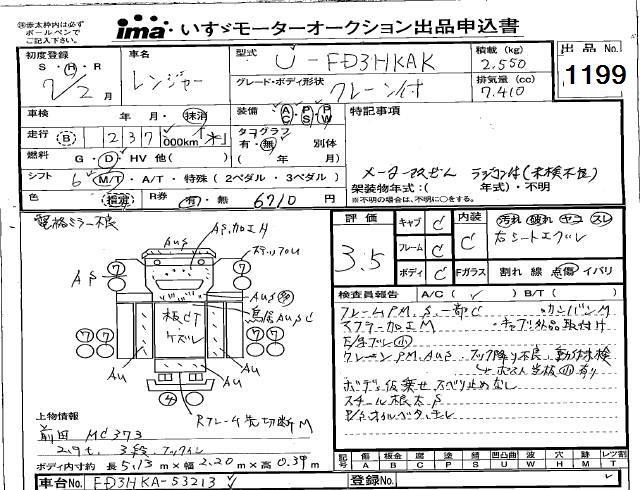 ※赤太枠内は必ず
ボールペンで
ご記入下さい。
ima いすゞモーターオークション出品申込書
初度登録
S・H・R
7/2月
車名
レンジャー
型式
U-FD3HKAK
グレード・ボディ形状
クレーン付
積載 (kg)
2.550
排気量 (cc)
7.410
出品No.
1199
車検 年・月・抹消
走行 B 237 000km
装備 AC PS PW
タコグラフ
有・無 別体
( 年 月)
特記事項
燃料 G・D・HV 他( )
シフト 6 M/T・A/T・特殊 (2ペダル・3ペダル)
色 指定 R券 有・無 6710 円
ラジコン付(未検不良)
架装物年式:( 年式)・不明
※不明の場合は、不明に○をする。
電格ミラー不良
評価
3.5
キャブ C
フレーム C
ボディ C
内装
C
Fガラス
汚れ 破れ ヤコ スレ
割れ 線 点傷 イバリ
検査員報告 A/C( ✓ ) B/T( )
AS,加工H
AuS
AS
7
7
7
7
4
AuS
鳥居AuSC
板CT
ケズレ
Au
Au
Rフレーム先切断M
フレームPM,S 一部C
マフラー加工M
キャブ外品取付け
クレーンPM,AuS フック降り不良 動作未検
ボディ仮乗せ スベリ止めなし
スチール根太S
上物情報
前田 MC373
2.9t 3段 フックイン
ボディ内寸 約 長 5.13 m×幅 2.20 m×高 0.39 m
記号 傷A 板金B 腐C 塗P 錆S 凹凸曲U 波W 穴H 跡M レンズ割T
車台No. FD3HKA-53213
登録No.